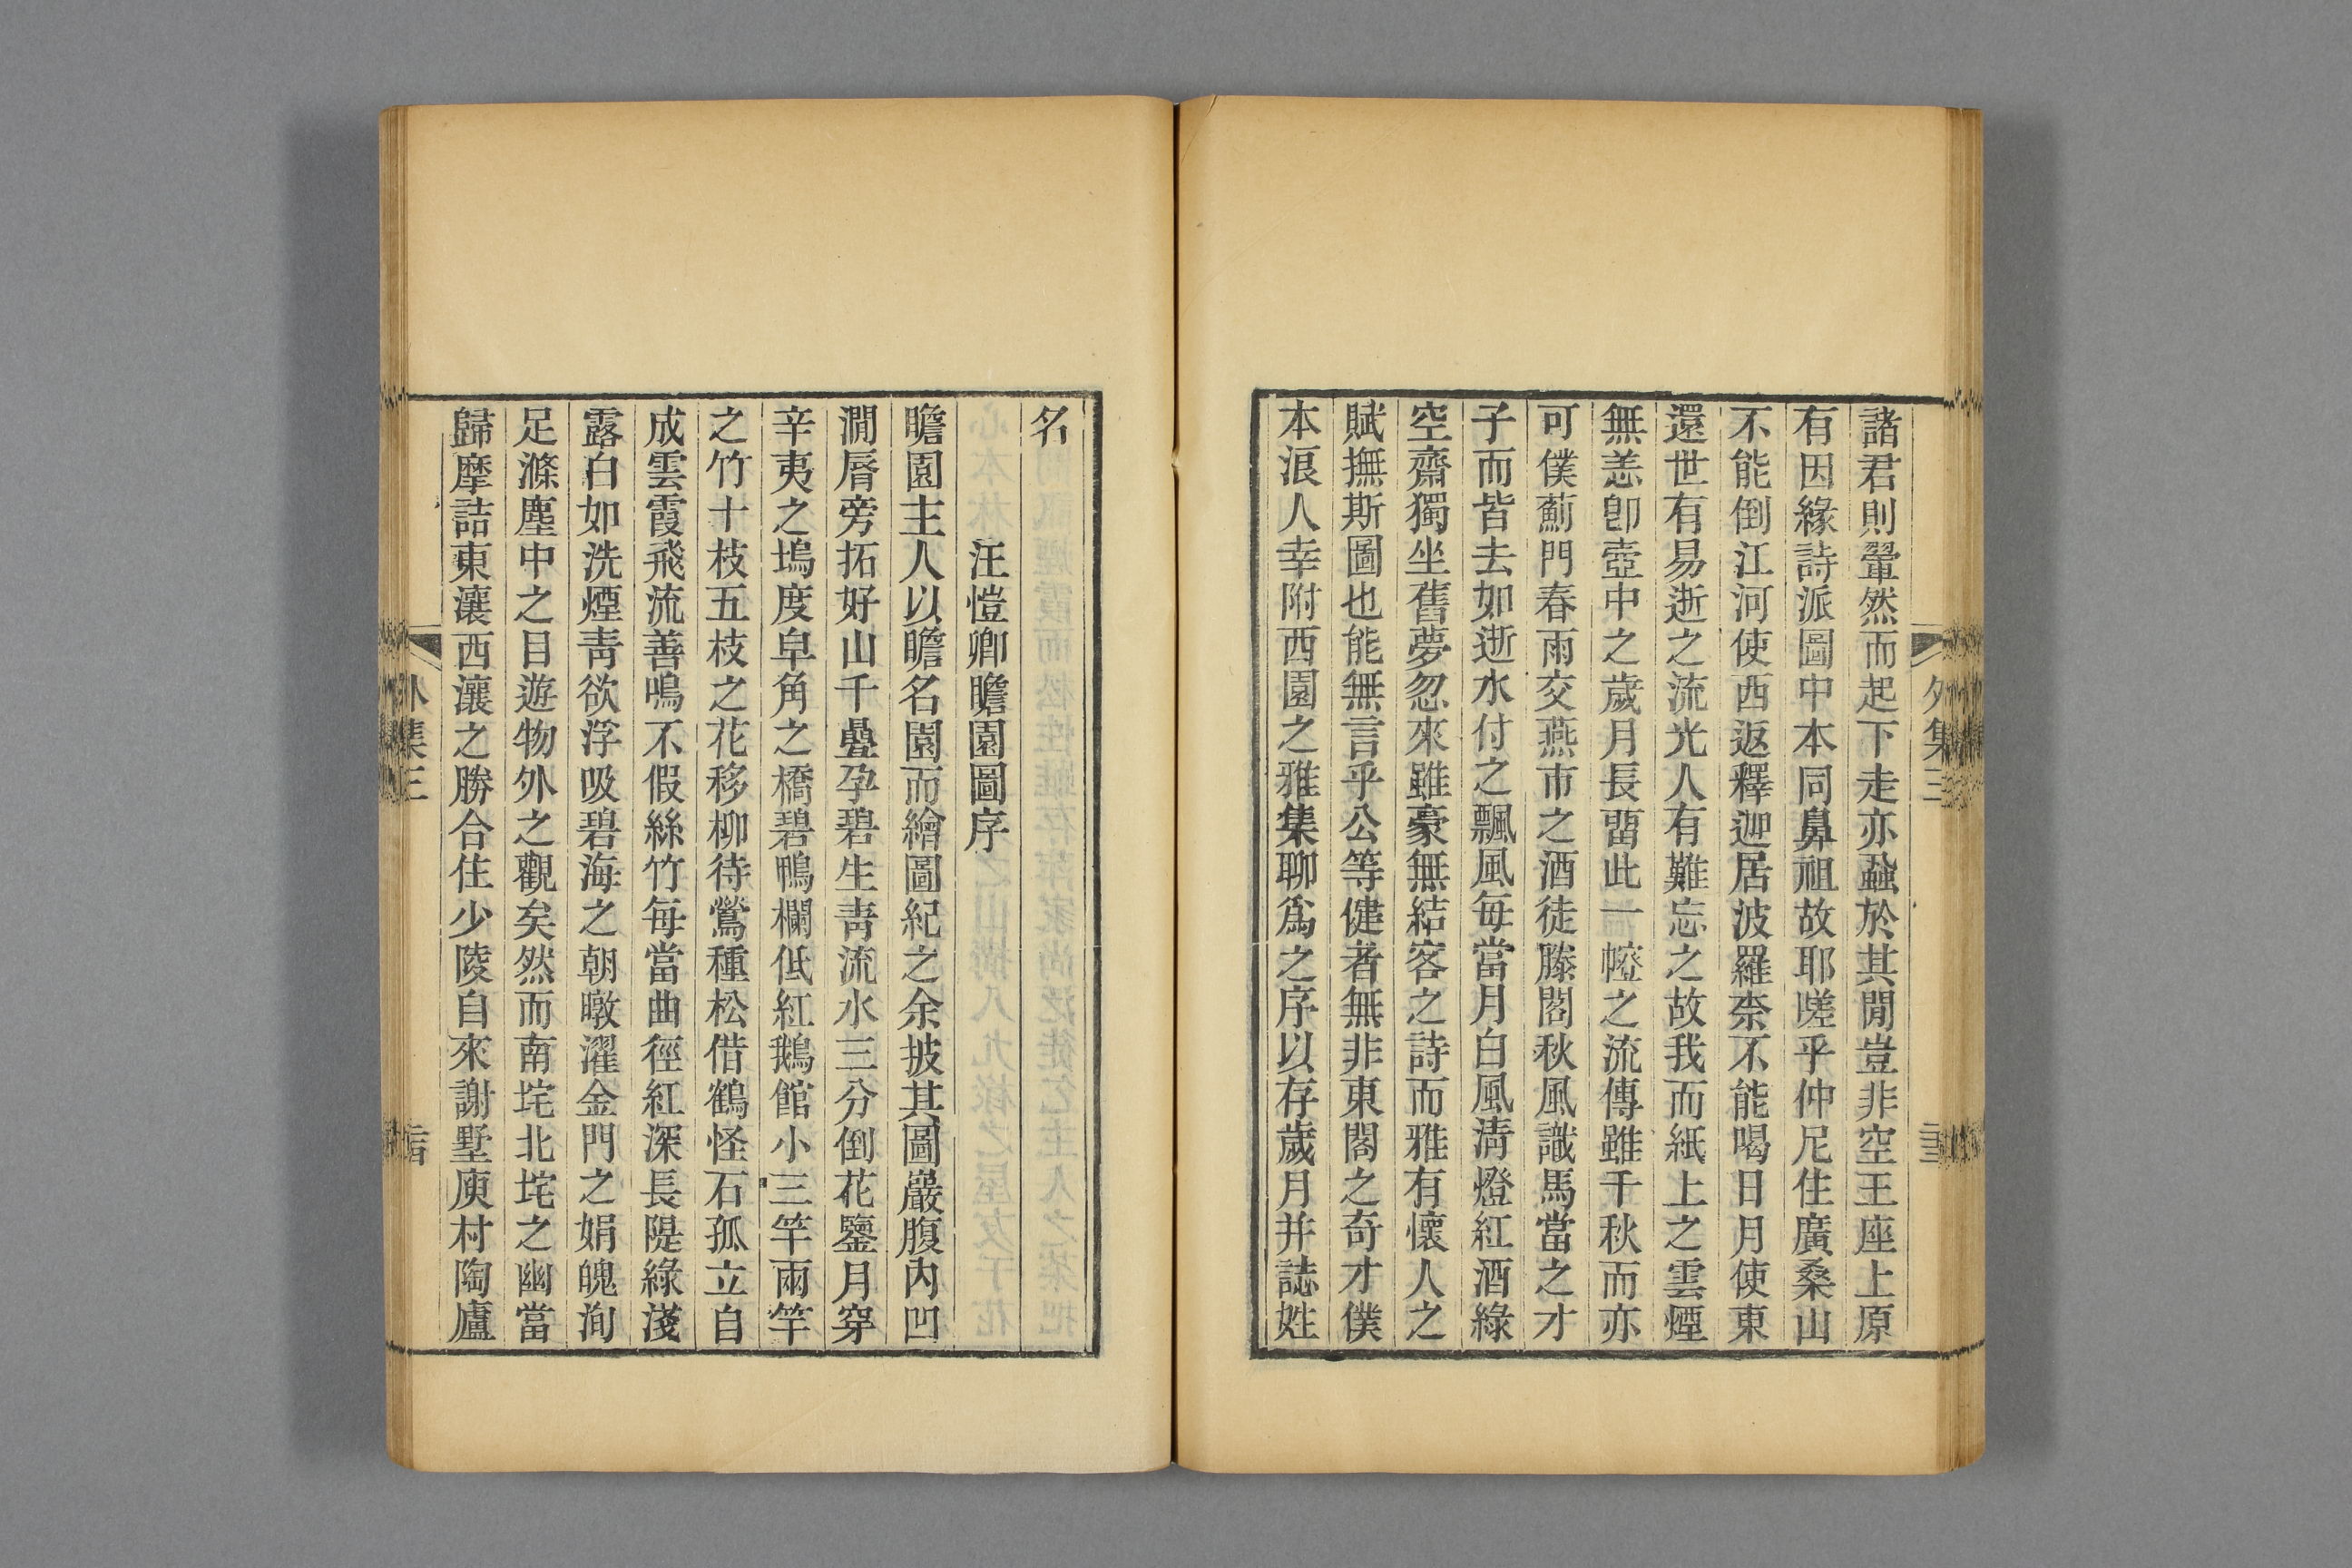 諸君則翬然而起下走亦蝨於其閒豈非空王座上原
有因緣詩派圖中本同鼻祖故耶嗟乎仲尼住廣桑山
不能倒江河使西返釋迦居波羅柰不能喝日月使東
還世有易逝之流光人有難忘之故我而紙上之雲煙
無恙卽壺中之歲月長畱此一㡧之流傳雖千秋而亦
可僕薊門春雨交燕市之酒徒滕閣秋風識馬當之才
子而皆去如逝水付之飄風每當月白風淸燈紅酒綠
空齋獨坐舊夢忽來雖豪無結客之詩而雅有懷人之
賦撫斯圖也能無言乎公等健者無非東閣之奇才僕
本浪人幸附西園之雅集聊爲之序以存歲月并誌姓
外集三
名
汪愷卿瞻園圖序
瞻園主人以瞻名園而繪圖紀之余披其圖巖腹內凹
澗脣旁拓好山千疊孕碧生靑流水三分倒花鑒月穿
辛夷之塢度皁角之橋碧鴨欄低紅鵝館小三竿兩竿
之竹十枝五枝之花移柳待鶯種松借鶴怪石孤立自
成雲霞飛流善鳴不假絲竹每當曲徑紅深長隄綠淺
露白如洗煙靑欲浮吸碧海之朝暾濯金門之娟魄洵
足滌塵中之目遊物外之觀矣然而南垞北垞之幽當
歸摩詰東瀼西瀼之勝合住少陵自來謝墅庾村陶廬
外集三